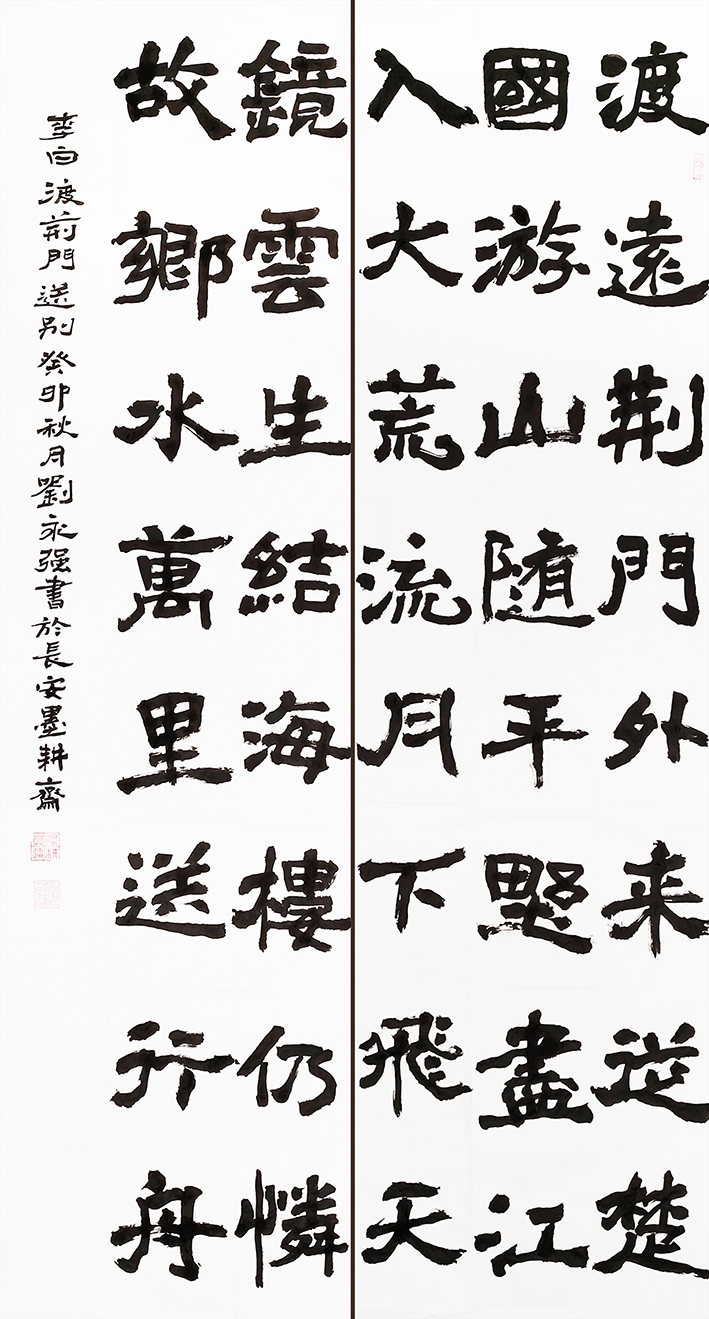 渡遠荆門外来従楚
國游山随平野盡江
入大荒流月下飛天
鏡雲生結海樓仍憐
故鄉水萬里送行舟
李白渡荊門送別癸卯秋月劉永强書於長安墨耕齋